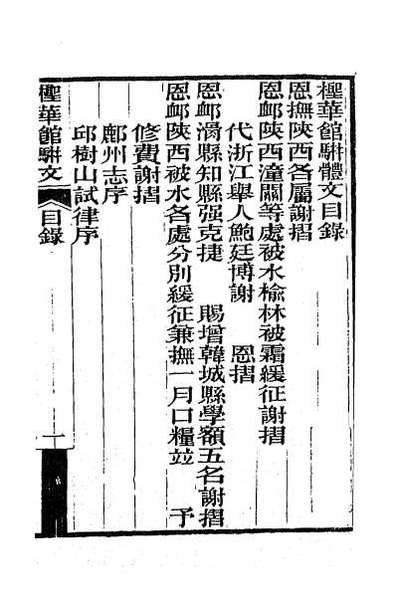 檉華館駢體文目錄
恩撫陝西各屬謝摺
恩邮陝西潼關等處被水榆林被霜緩征謝摺
代浙江舉人鮑廷博謝　恩摺
恩邮滑縣知縣强克捷　賜增韓城縣學額五名謝摺
恩邮陝西被水各處分別緩征兼撫一月口糧並　予
修費謝摺
鄜州志序
邱樹山試律序
檉華館駢文
目錄
一